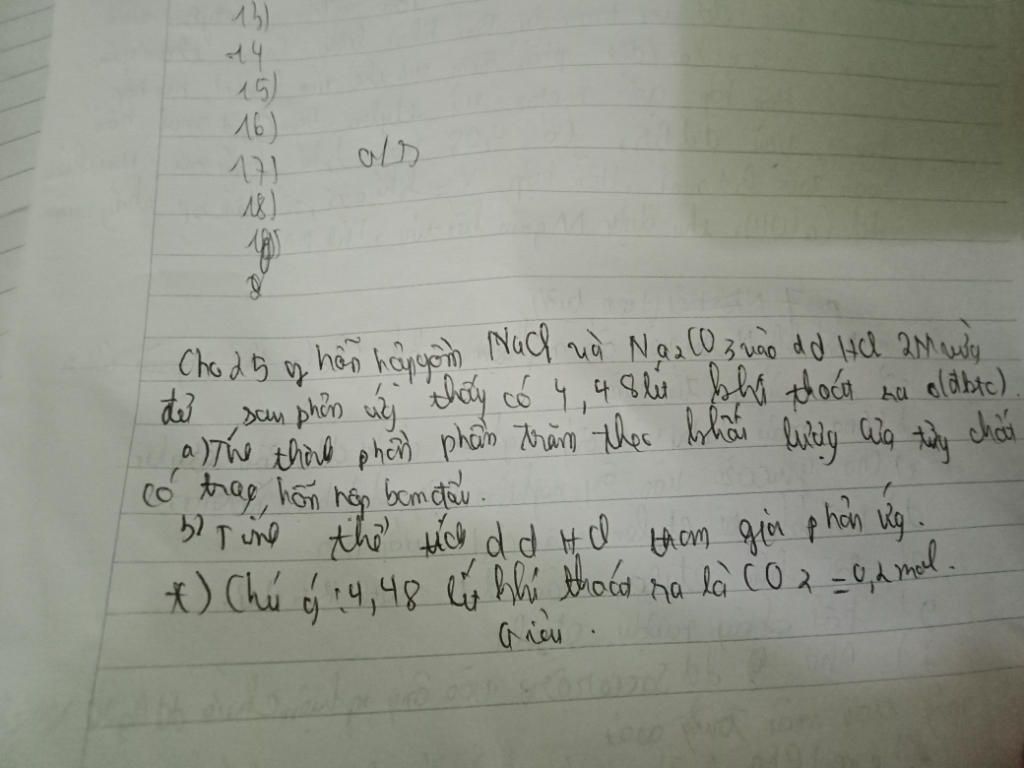 13)
14
15)
16)
17)
18)
Cho 25 g hỗn hợp gồm NaCl và Na2CO3 vào dd HCl 2M vừa
đủ sau phản ứng thấy có 4,48 lít khí thoát ra (đktc).
a) Tính thành phần phần trăm theo khối lượng của từng chất
có trong hỗn hợp ban đầu.
b) Tính thể tích dd HCl tham gia phản ứng.
*) Chú ý: 4,48 lít khí thoát ra là CO2 = 0,2 mol.
Giải.